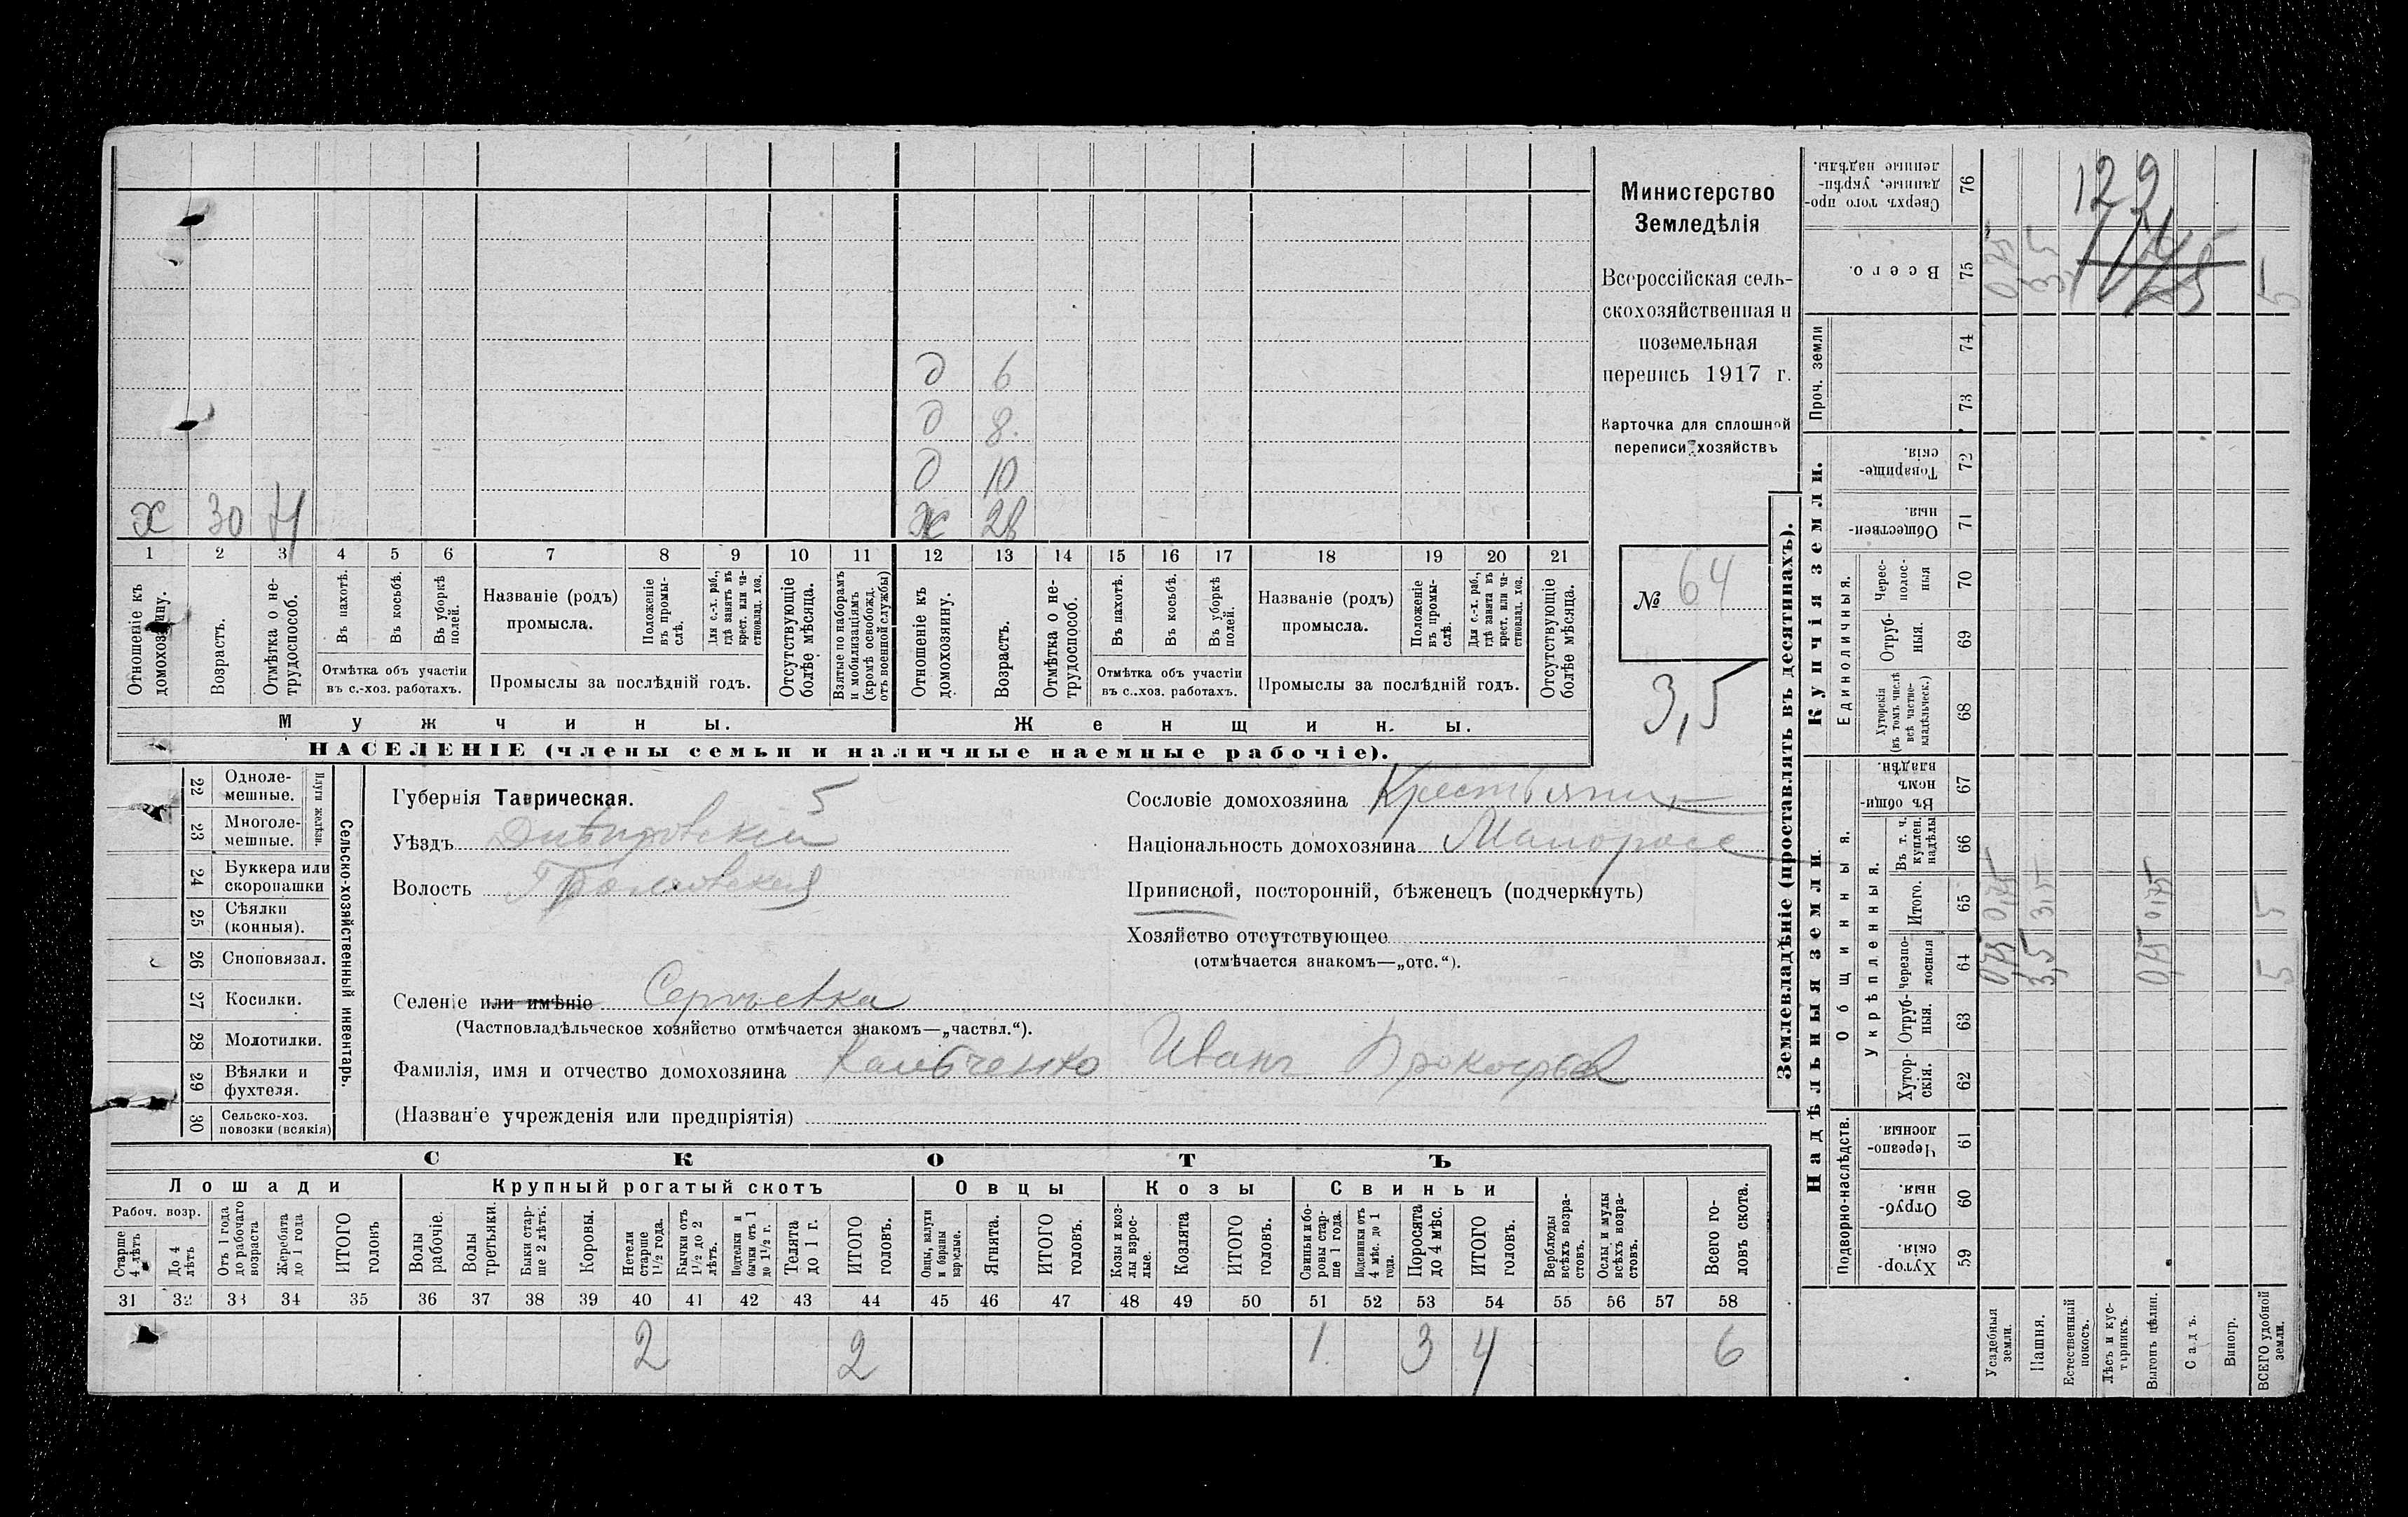 Министерство
Земледѣлія
Всероссійская сель-
скохозяйственная и
поземельная
перепись 1917 г.
Карточка для сплошной
переписи хозяйствъ
№ 64
3,5
д 6
д 8
д 10
х 30 н
ж 28
1 2 3 4 5 6 7 8 9 10 11 12 13 14 15 16 17 18 19 20 21
Отношеніе къ домохозяину.
Возрастъ.
Отмѣтка о не-трудоспособ.
Въ пахотѣ.
Въ косьбѣ.
Въ уборкѣ полей.
Отмѣтка объ участіи
въ с.-хоз. работахъ.
Названіе (родъ)
промысла.
Положеніе въ промы-слѣ.
Для с.-х. раб., гдѣ занятъ въ крест. или ча-стновлад. хоз.
Промыслы за послѣдній годъ.
Отсутствующіе болѣе мѣсяца.
Взятые по наборамъ и мобилизаціямъ (кромѣ освобожд. отъ военной службы)
Отношеніе къ домохозяину.
Возрастъ.
Отмѣтка о не-трудоспособ.
Въ пахотѣ.
Въ косьбѣ.
Въ уборкѣ полей.
Отмѣтка объ участіи
въ с.-хоз. работахъ.
Названіе (родъ)
промысла.
Положеніе въ промы-слѣ.
Для с.-х. раб., гдѣ занята въ крест. или ча-стновлад. хоз.
Промыслы за послѣдній годъ.
Отсутствующіе болѣе мѣсяца.
Мужчины.
Женщины.
НАСЕЛЕНІЕ (члены семьи и наличные наемные рабочіе).
22 Одноле-мешные.
23 Многоле-мешные.
Плуги желѣзн.
24 Буккера или скоропашки
25 Сѣялки (конныя).
26 Сноповязал.
27 Косилки.
28 Молотилки.
29 Вѣялки и фухтеля.
30 Сельско-хоз. повозки (всякія)
Сельско-хозяйственный инвентарь.
Губернія Таврическая. 5
Уѣздъ Днѣпровскій
Волость
Селеніе или имѣніе Сергѣевка
(Частновладѣльческое хозяйство отмѣчается знакомъ—„частвл.“).
Фамилія, имя и отчество домохозяина Иванъ Прокофьев
(Названіе учрежденія или предпріятія)
Сословіе домохозяина Крестьянин
Національность домохозяина Малоросс
Приписной, посторонній, бѣженецъ (подчеркнуть)
Хозяйство отсутствующее
(отмѣчается знакомъ—„отс.“).
СКОТЪ
Лошади
Крупный рогатый скотъ
Овцы
Козы
Свиньи
Рабоч. возр.
Старше 4 лѣтъ
До 4 лѣтъ
Отъ 1 года до рабочаго возраста
Жеребята до 1 года
ИТОГО головъ
Волы рабочіе.
Волы третьяки.
Быки стар-ше 2 лѣтъ.
Коровы.
Нетели старше 1½ года.
Бычки отъ 1½ до 2 лѣтъ.
Подтелки и бычки отъ 1 до 1½ г.
Телята до 1 г.
ИТОГО головъ.
Овцы, валухи и бараны взрослые.
Ягнята.
ИТОГО головъ.
Козы и коз-лы взрос-лые.
Козлята
ИТОГО головъ.
Свиньи и бо-ровы стар-ше 1 года.
Подсвинки отъ 4 мѣс. до 1 года.
Поросята до 4 мѣс.
ИТОГО головъ.
Верблюды всѣхъ возра-стовъ.
Ослы и мулы всѣхъ возра-стовъ.
Всего го-ловъ скота.
31 32 33 34 35 36 37 38 39 40 41 42 43 44 45 46 47 48 49 50 51 52 53 54 55 56 57 58
2 2 1 3 4 6
Землевладѣніе (проставлять въ десятинахъ).
Надѣльныя земли
Купчія земли.
Проч. земли
Подворно-наслѣдств.
Общинныя.
Укрѣпленныя.
Единоличныя.
Сверхъ того про-данные, укрѣп-ленные надѣлы. 76
Всего. 75
74
73
Товарище-скія. 72
Обществен-ныя. 71
Черес-полос-ныя 70
Отруб-ныя. 69
Хуторскія (въ томъ числѣ всѣ частно-владѣльческ.) 68
Въ общин-номъ владѣн. 67
Въ т. ч. куплен. надѣлы 66
Итого. 65
Черезпо-лосныя 64
Отруб-ныя. 63
Хутор-скія. 62
Черезпо-лосныя. 61
Отруб-ныя. 60
Хутор-скія. 59
Усадебныя земли.
Пашня.
Естественный покосъ.
Лѣсъ и кус-тарникъ.
Выгонъ цѣлин.
Садъ.
Виногр.
ВСЕГО удобной земли.
129
0,75 3,5 5
0,75 3,5 0,75 5
0,75 3,5 0,75 5